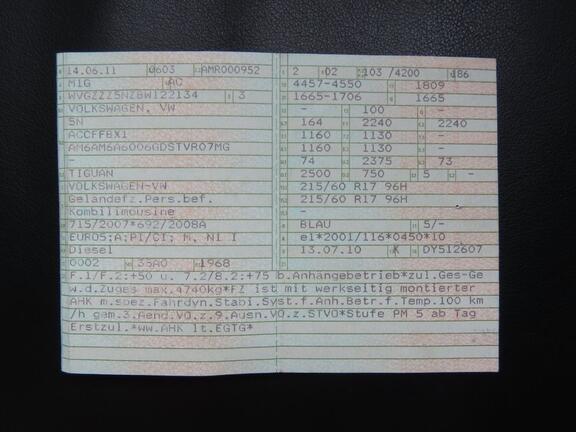 14.06.11 0603 AMR000952 2 02 103 /4200 186
M1G AC 4457-4550 1809
WVGZZZ5NZBW122134 3 1665-1706 1665
VOLKSWAGEN, VW - 100 -
5N 164 2240 2240
ACCFFBX1 1160 1130 -
AM6AM6A6006GDSTVR07MG 1160 1130 -
- 74 2375 73
TIGUAN 2500 750 5 -
VOLKSWAGEN-VW 215/60 R17 96H
Geländefz.Pers.bef. 215/60 R17 96H
Kombilimousine -
715/2007*692/2008A BLAU 5/-
EURO5;A;PI/CI; M, N1 I e1*2001/116*0450*10
Diesel 13.07.10 K DY512607
0002 35A0 1968
F.1/F.2:+50 u. 7.2/8.2:+75 b.Anhängebetrieb*zul.Ges-Ge
w.d.Zuges max.4740kg*FZ ist mit werkseitig montierter
AHK m.spez.Fahrdyn.Stabi.Syst.f.Anh.Betr.f.Temp.100 km
/h gem.3.Aend.VO.z.9.Ausn.VO.z.STVO*Stufe PM 5 ab Tag
Erstzul.*ww.AHK lt.EGTG*